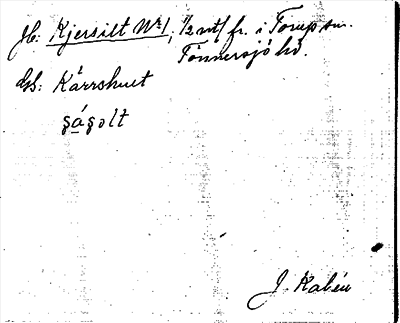 Jb: Kjersilt No 1, 1/2 mtl fr. i Torup sn.
Tönnersjö hd.
GS: Kärrshult
şáşolt
J. Kalén